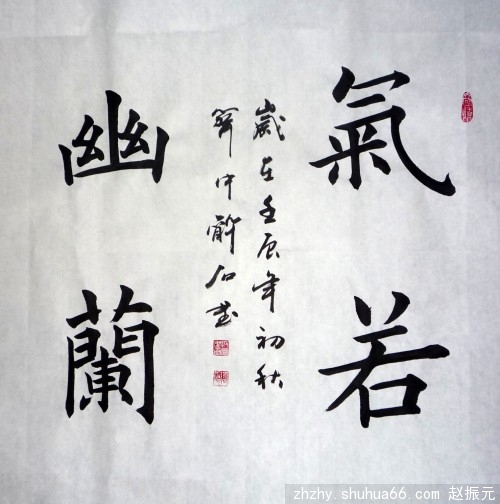 氣若
幽蘭
歲在壬辰年初秋
zhzhy.shuhua66.com 赵振元